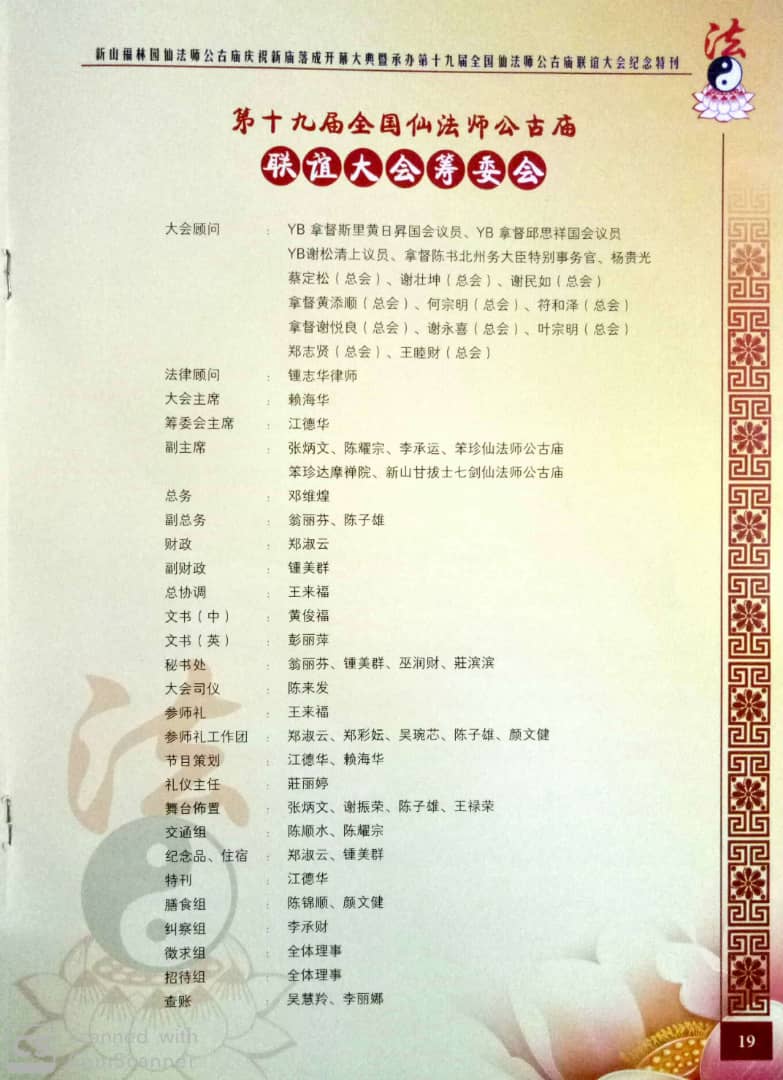 新山福林园仙法师公古庙庆祝新庙落成开幕大典暨承办第十九届全国仙法师公古庙联谊大会纪念特刊
法
第十九届全国仙法师公古庙
联谊大会筹委会
大会顾问 : YB 拿督斯里黄日昇国会议员、YB 拿督邱思祥国会议员
YB谢松清上议员、拿督陈书北州务大臣特别事务官、杨贵光
蔡定松（总会）、谢壮坤（总会）、谢民如（总会）
拿督黄添顺（总会）、何宗明（总会）、符和泽（总会）
拿督谢悦良（总会）、谢永喜（总会）、叶宗明（总会）
郑志贤（总会）、王睦财（总会）
法律顾问 : 锺志华律师
大会主席 : 赖海华
筹委会主席 : 江德华
副主席 : 张炳文、陈耀宗、李承运、笨珍仙法师公古庙
笨珍达摩禅院、新山甘拔士七剑仙法师公古庙
总务 : 邓维煌
副总务 : 翁丽芬、陈子雄
财政 : 郑淑云
副财政 : 锺美群
总协调 : 王来福
文书（中） : 黄俊福
文书（英） : 彭丽萍
秘书处 : 翁丽芬、锺美群、巫润财、莊滨滨
大会司仪 : 陈来发
参师礼 : 王来福
参师礼工作团 : 郑淑云、郑彩妘、吴琬芯、陈子雄、颜文健
节目策划 : 江德华、赖海华
礼仪主任 : 莊丽婷
舞台佈置 : 张炳文、谢振荣、陈子雄、王禄荣
交通组 : 陈顺水、陈耀宗
纪念品、住宿 : 郑淑云、锺美群
特刊 : 江德华
膳食组 : 陈锦顺、颜文健
纠察组 : 李承财
徵求组 : 全体理事
招待组 : 全体理事
查账 : 吴慧羚、李丽娜
法
19